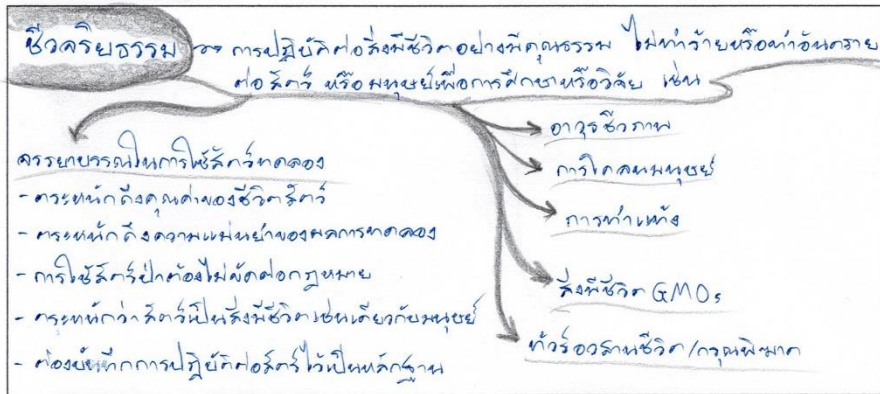 ชีวจริยธรรม → การปฏิบัติต่อสิ่งมีชีวิตอย่างมีคุณธรรม ไม่ทำร้ายหรือทำอันตราย
ต่อสัตว์ หรือมนุษย์เพื่อการศึกษาหรือวิจัย เช่น
จรรยาบรรณในการใช้สัตว์ทดลอง
- ตระหนักถึงคุณค่าของชีวิตสัตว์
- ตระหนักถึงความแม่นยำของผลการทดลอง
- การใช้สัตว์ป่าต้องไม่ขัดต่อกฎหมาย
- ตระหนักว่าสัตว์เป็นสิ่งมีชีวิตเช่นเดียวกับมนุษย์
- ต้องบันทึกการปฏิบัติต่อสัตว์ไว้เป็นหลักฐาน
อาวุธชีวภาพ
การโคลนมนุษย์
การทำแท้ง
สิ่งมีชีวิต GMOs
ทัวร์อวสานชีวิต/การุณพิฆาต